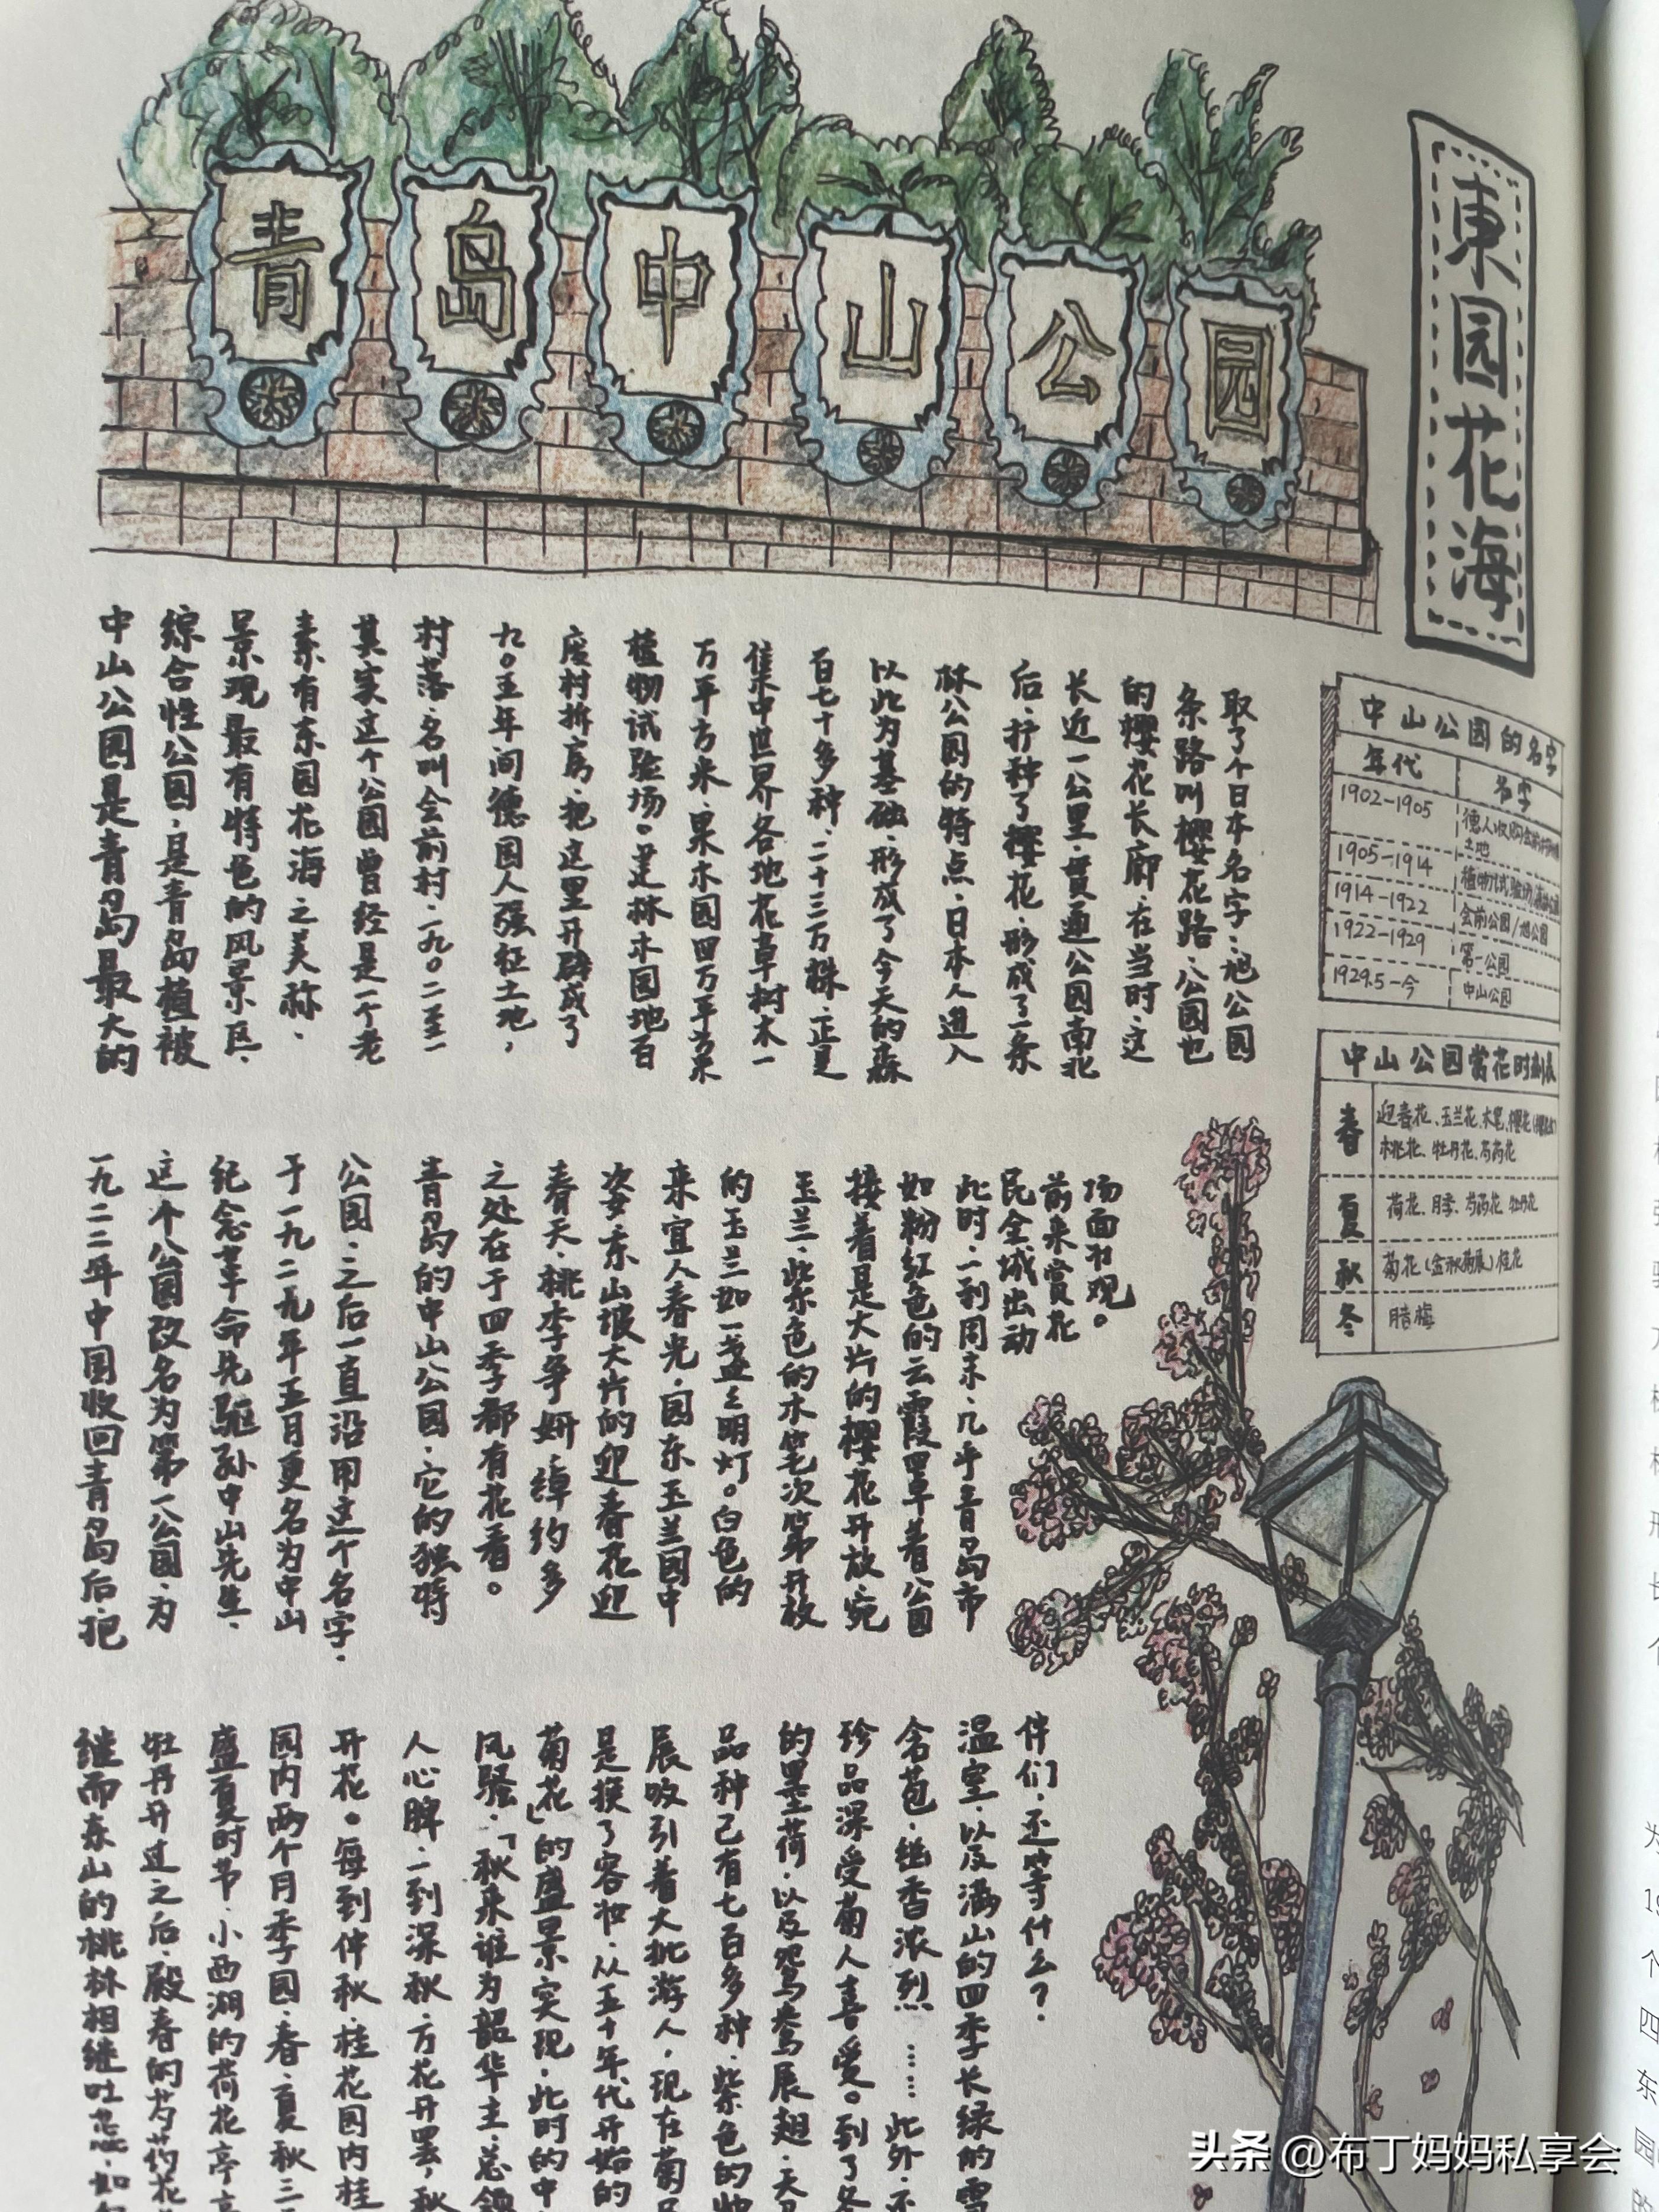 青岛中山公园
東园花海
中山公园的名字
年代 名字
1902-1905 德人收购会前村
土地
1905-1914 植物试验场
1914-1922 会前公园/旭公园
1922-1929 第一公园
1929.5-今 中山公园
中山公园赏花时刻表
春 迎春花、玉兰花、木笔、樱花
桃花、牡丹花、芍药花
夏 荷花、月季、芍药花、牡丹花
秋 菊花(金秋菊展)桂花
冬 腊梅
中山公园是青岛最大的
综合性公园,是青岛植被
景观最有特色的风景区,
素有东园花海之美称,
其实这个公园曾经是一个老
村落,名叫会前村,一九〇二至一
九〇五年间德国人强征土地,
废村拆房,把这里开辟成了
植物试验场。建林木园地百
万平方米,果木园四万平方米
集中世界各地花草树木一
百七十多种,二十三万株,正是
以此为基础,形成了今天的森
林公园的特点,日本人进入
后,护种了樱花,形成了一条
长近一公里,贯通公园南北
的樱花长廊,在当时,这
条路叫樱花路,公园也
取了个日本名字,旭公园
一九二二年中国收回青岛后,把
这个公园改名为第一公园,为
纪念革命先驱孙中山先生,
于一九二九年五月更名为中山
公园,之后一直沿用这个名字.
青岛的中山公园,它的独特
之处在于四季都有花看。
春天,桃李争妍,绰约多
姿,东山坡大片的迎春花迎
来宜人春光,园东玉兰园中
的玉兰如一盏盏明灯。白色的
玉兰,紫色的木笔次第开放
接着是大片的樱花开放,宛
如粉红色的云霞罩着公园
此时,一到周末,几乎青岛市
民全城出动
前来赏花
场面壮观。
继而东山的桃林相继吐蕊,如
牡丹开过之后,殿春的芍药花
盛夏时节,小西湖的荷花亭亭
园内两个月季园,春、夏、秋三
开花。每到仲秋,桂花园内桂
人心脾,一到深秋,万花开罢,秋
风骚,「秋来谁为韶华主,总领
菊花」的盛景实现,此时的中
是换了容妆,从五十年代开始的
展吸引着大批游人,现在菊
品种已有七百多种,紫色的
的墨荷,以及鸳鸯展翅、天
珍品深受菊人喜爱。到了冬
含苞,幽香浓烈……此外,还
温室,以及满山的四季长绿的雪
伴们,还等什么?
头条 @布丁妈妈私享会